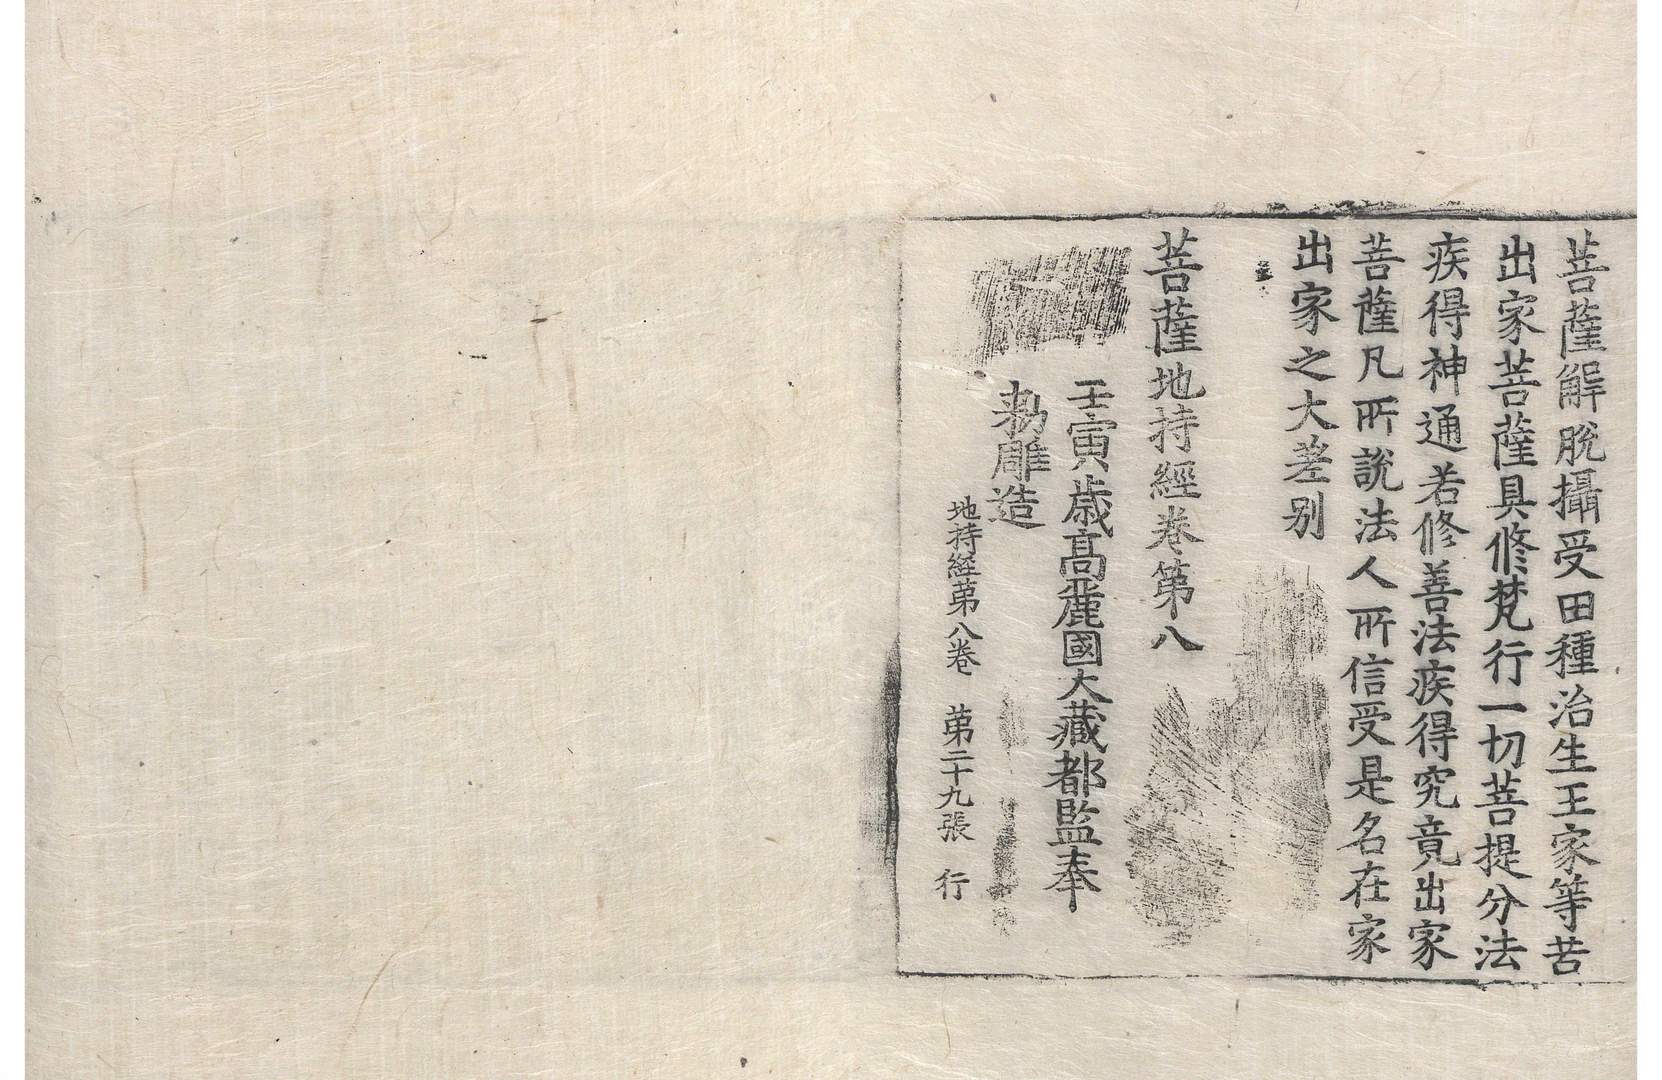 菩薩解脫攝受田種治生王家等苦
出家菩薩具修梵行一切菩提分法
疾得神通若修善法疾得究竟出家
菩薩凡所說法人所信受是名在家
出家之大差别
菩薩地持經卷第八
壬寅歲高麗國大藏都監奉
勑雕造
地持經第八卷 第二十九張 行